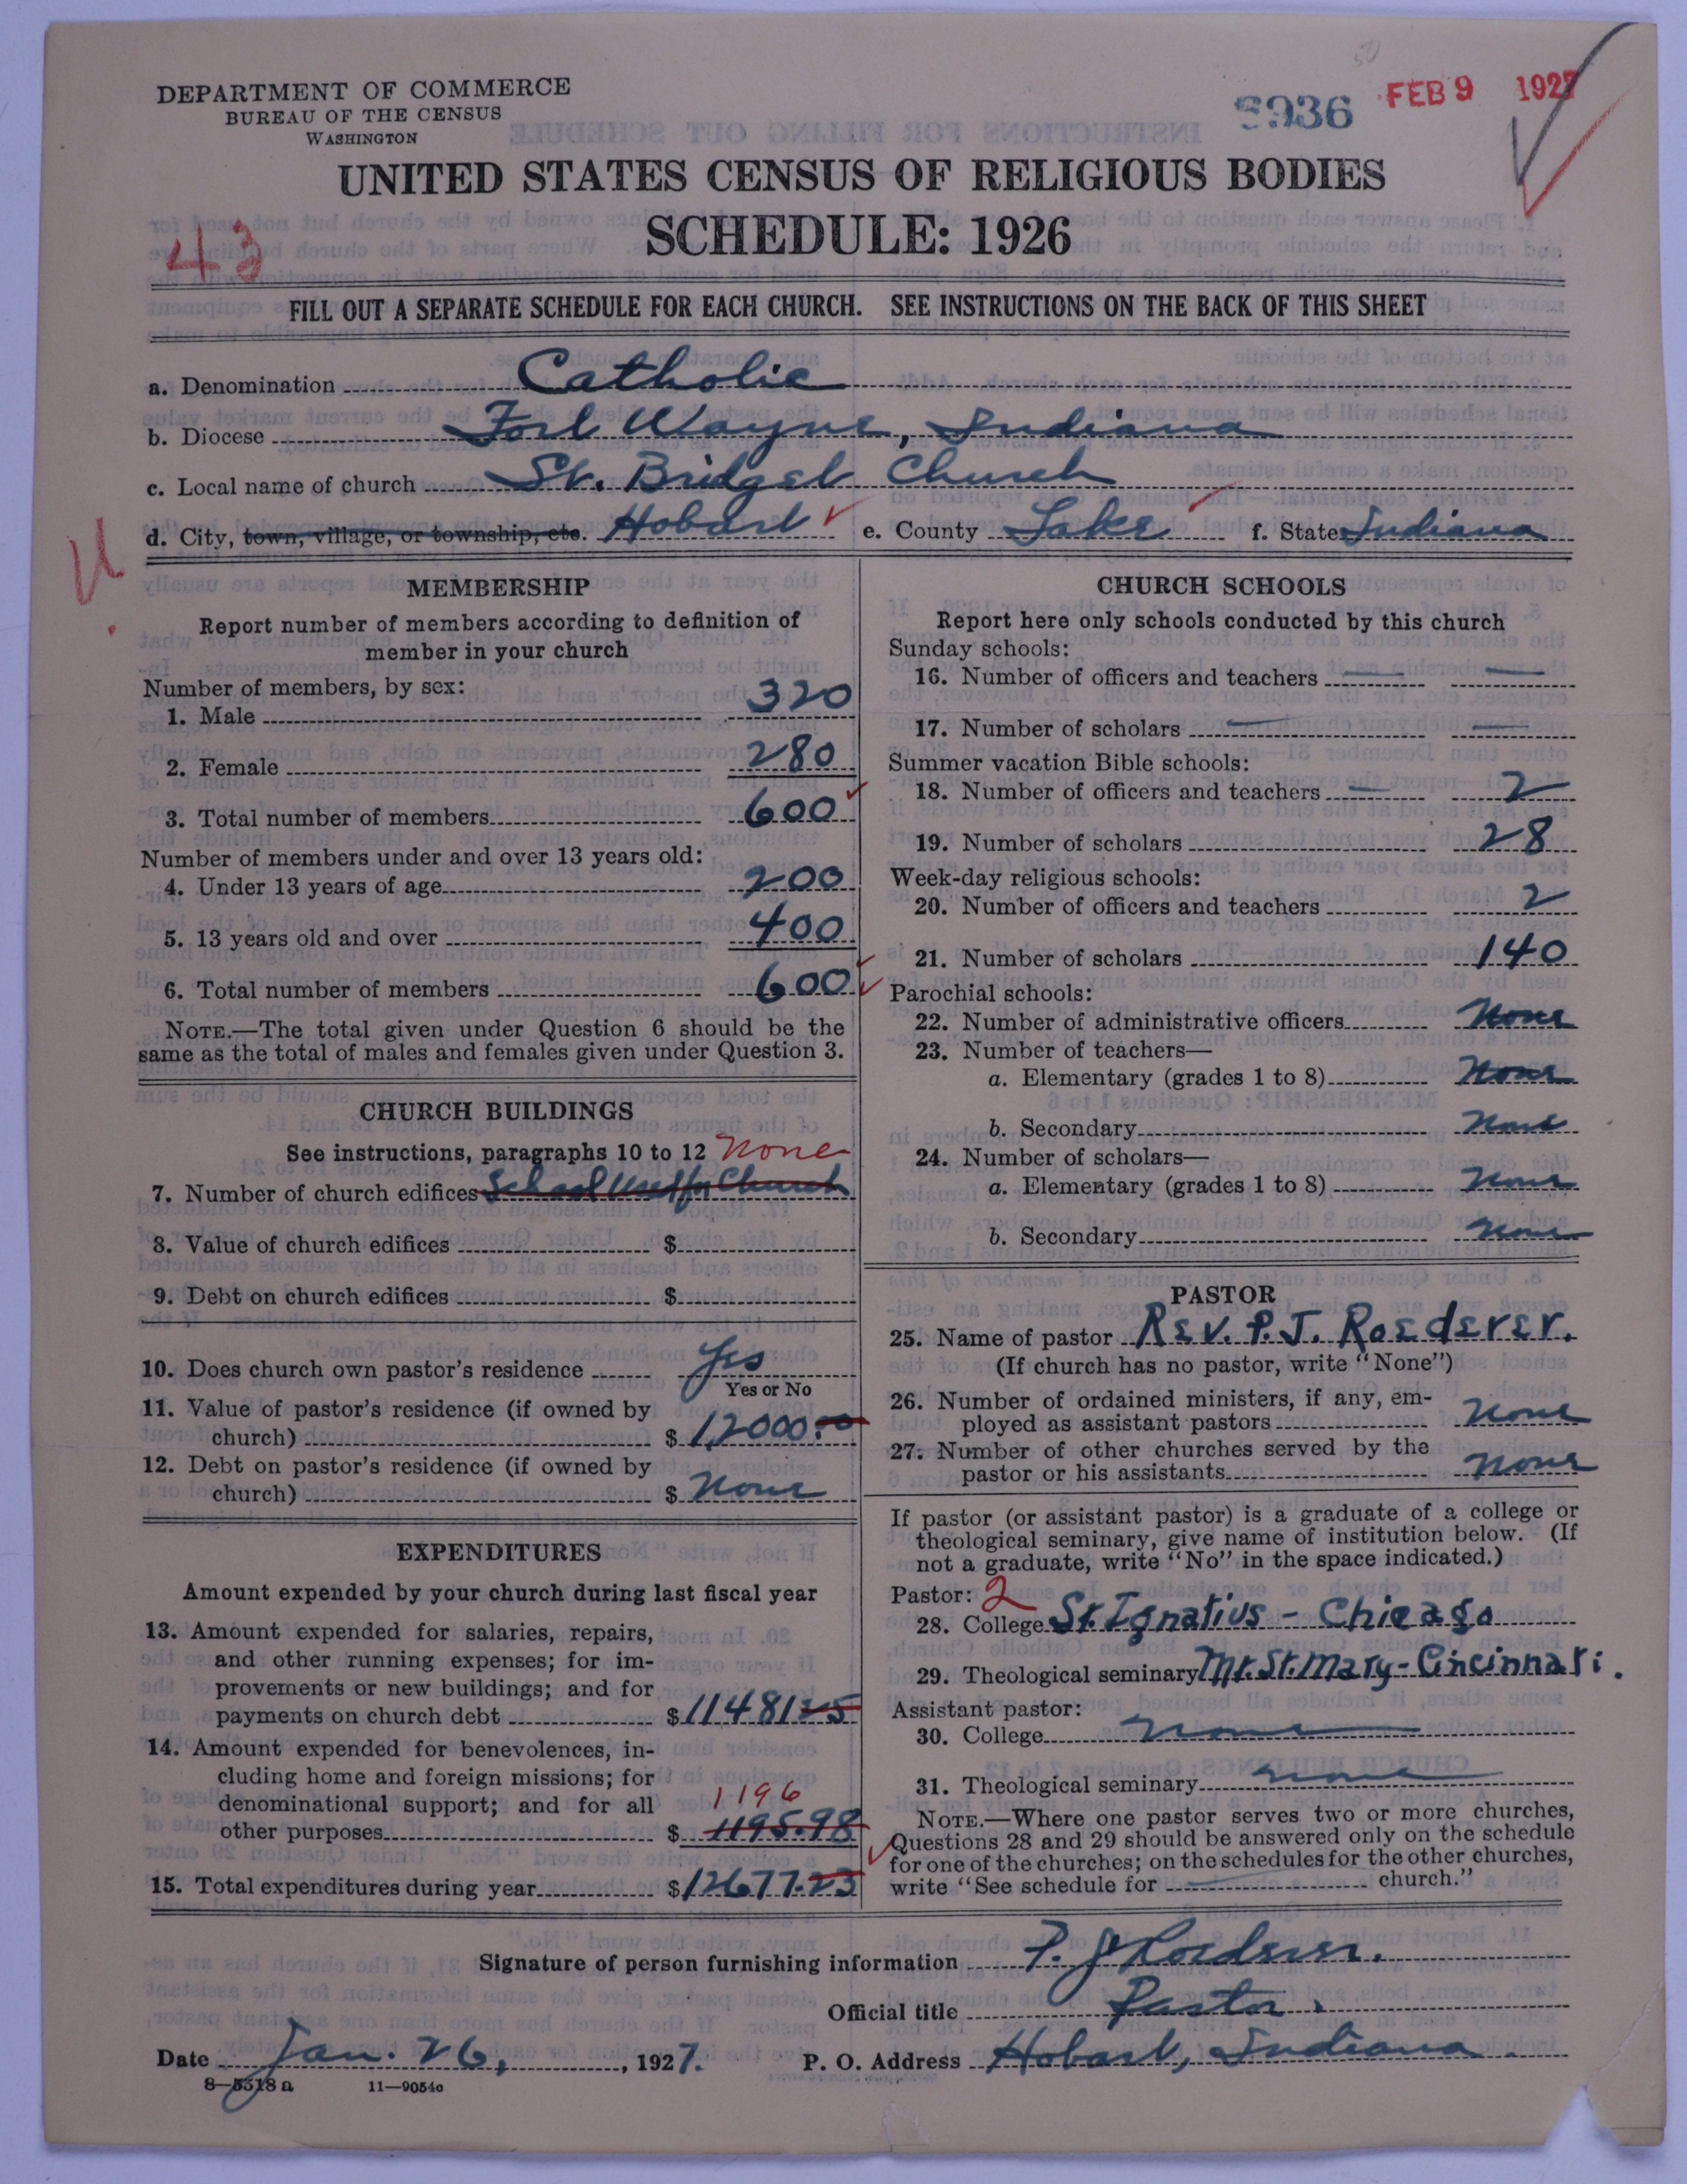 DEPARTMENT OF COMMERCE
BUREAU OF THE CENSUS
WASHINGTON
5936 FEB 9 1927
UNITED STATES CENSUS OF RELIGIOUS BODIES
SCHEDULE: 1926
43
FILL OUT A SEPARATE SCHEDULE FOR EACH CHURCH. SEE INSTRUCTIONS ON THE BACK OF THIS SHEET
a. Denomination Catholic
b. Diocese Fort Wayne, Indiana
c. Local name of church St. Bridget Church
d. City, town, village, or township, etc. Hobart e. County Lake f. State Indiana
MEMBERSHIP
Report number of members according to definition of
member in your church
Number of members, by sex:
1. Male 320
2. Female 280
3. Total number of members 600
Number of members under and over 13 years old:
4. Under 13 years of age 200
5. 13 years old and over 400
6. Total number of members 600
NOTE.—The total given under Question 6 should be the
same as the total of males and females given under Question 3.
CHURCH BUILDINGS
See instructions, paragraphs 10 to 12 None
7. Number of church edifices School Used for Church
8. Value of church edifices $
9. Debt on church edifices $
10. Does church own pastor's residence Yes
Yes or No
11. Value of pastor's residence (if owned by
church) $ 12000.00
12. Debt on pastor's residence (if owned by
church) $ None
EXPENDITURES
Amount expended by your church during last fiscal year
13. Amount expended for salaries, repairs,
and other running expenses; for im-
provements or new buildings; and for
payments on church debt $ 11481.25
14. Amount expended for benevolences, in-
cluding home and foreign missions; for
denominational support; and for all 1196
other purposes $ 1195.98
15. Total expenditures during year $ 12677.23
CHURCH SCHOOLS
Report here only schools conducted by this church
Sunday schools:
16. Number of officers and teachers —
17. Number of scholars —
Summer vacation Bible schools:
18. Number of officers and teachers — 2
19. Number of scholars 28
Week-day religious schools:
20. Number of officers and teachers 2
21. Number of scholars 140
Parochial schools:
22. Number of administrative officers None
23. Number of teachers—
a. Elementary (grades 1 to 8) None
b. Secondary None
24. Number of scholars—
a. Elementary (grades 1 to 8) None
b. Secondary None
PASTOR
25. Name of pastor Rev. P. J. Roederer.
(If church has no pastor, write "None")
26. Number of ordained ministers, if any, em-
ployed as assistant pastors None
27. Number of other churches served by the
pastor or his assistants None
If pastor (or assistant pastor) is a graduate of a college or
theological seminary, give name of institution below. (If
not a graduate, write "No" in the space indicated.)
Pastor: 2
28. College St. Ignatius - Chicago
29. Theological seminary Mt. St. Mary - Cincinnati.
Assistant pastor:
30. College None
31. Theological seminary None
NOTE.—Where one pastor serves two or more churches,
Questions 28 and 29 should be answered only on the schedule
for one of the churches; on the schedules for the other churches,
write "See schedule for — church."
Signature of person furnishing information P. J. Roederer.
Official title Pastor.
Date Jan. 26, , 1927. P. O. Address Hobart, Indiana.
8—5518 a 11—9054c